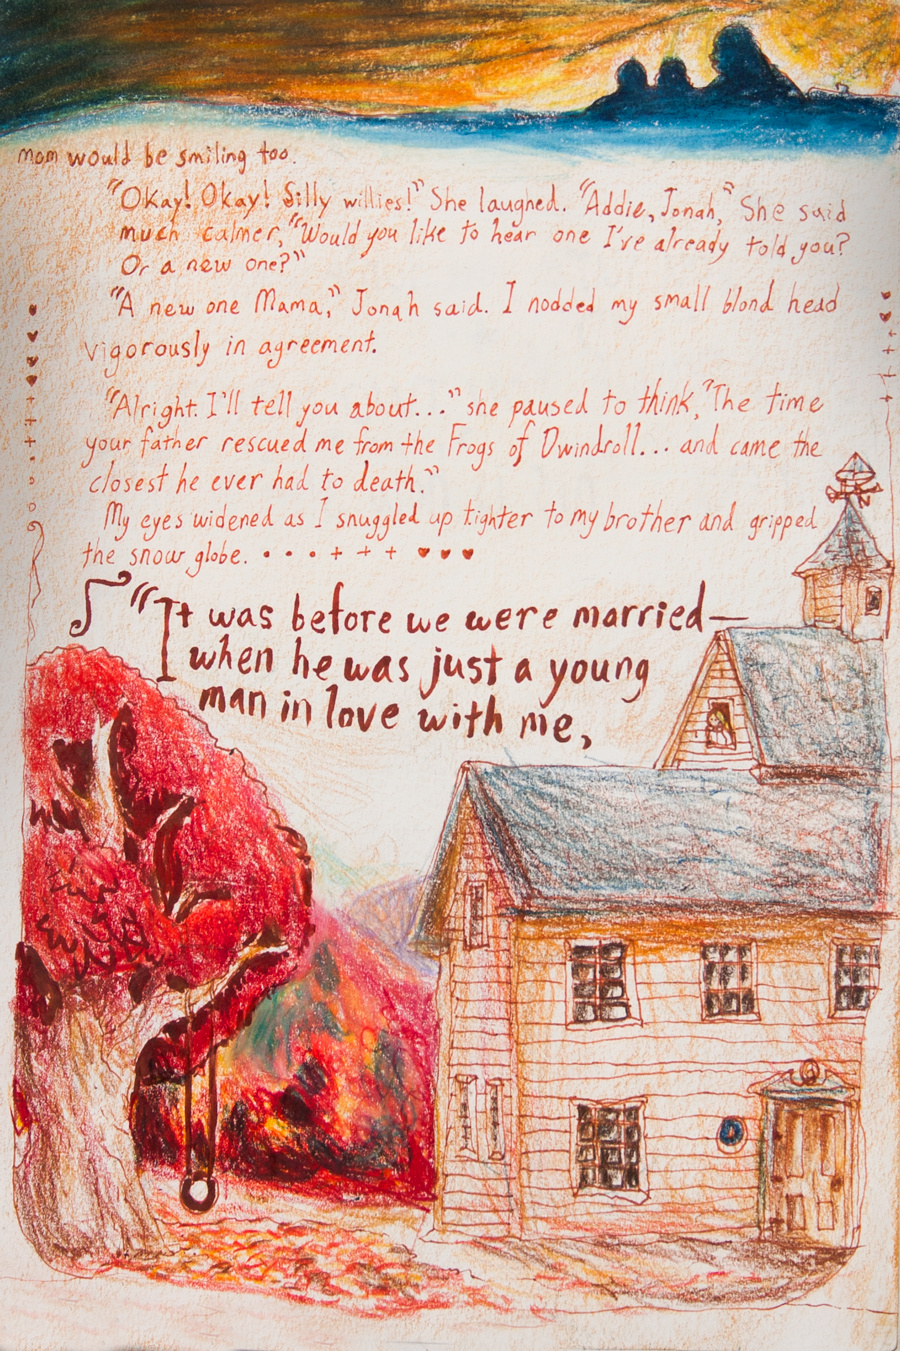 mom would be smiling too.
"Okay! Okay! Silly willies!" She laughed. "Addie, Jonah," She said
much calmer, "Would you like to hear one I've already told you?
Or a new one?"
"A new one Mama," Jonah said. I nodded my small blond head
vigorously in agreement.
"Alright. I'll tell you about..." she paused to think, "The time
your father rescued me from the Frogs of Dwindroll... and came the
closest he ever had to death."
My eyes widened as I snuggled up tighter to my brother and gripped
the snow globe.
"It was before we were married—
when he was just a young
man in love with me,